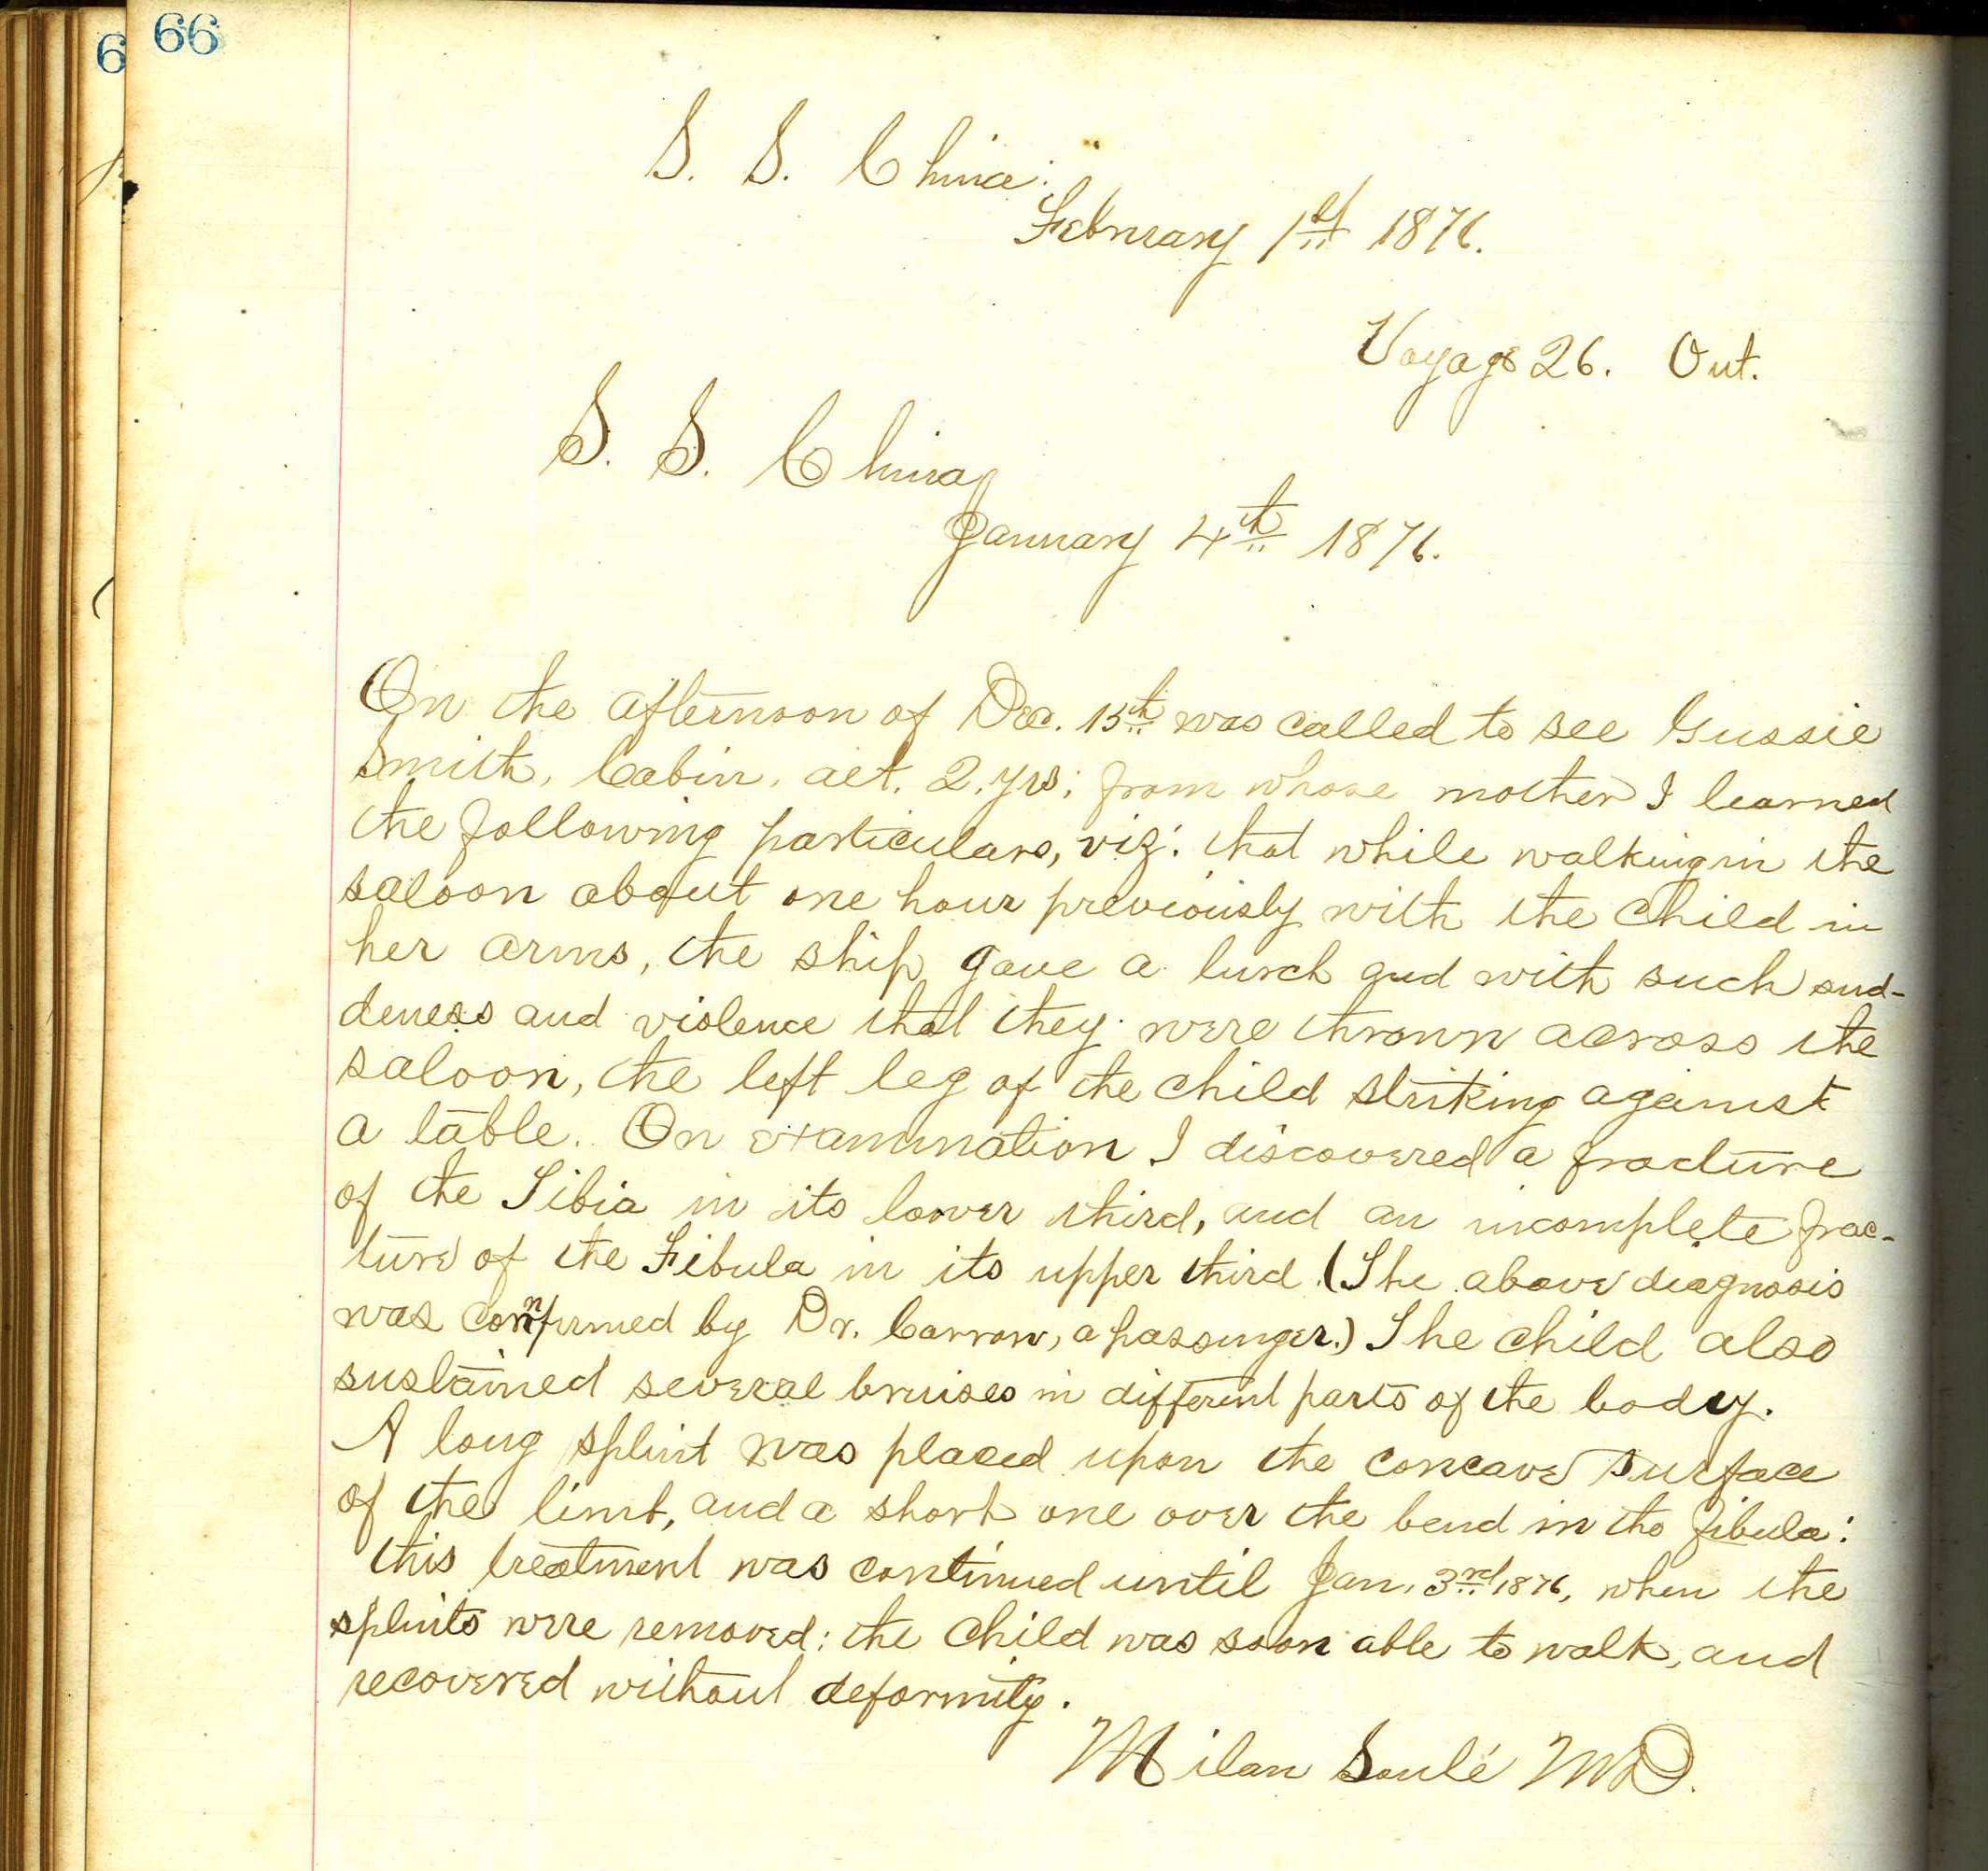 66
6
S. S. China:
February 1st 1876.
Voyage 26. Out.
S. S. China,
January 4th 1876.
On the afternoon of Dec. 15th was called to see Gussie
Smith, Cabin, aet. 2. yrs; from whose mother I learned
the following particulars, viz: that while walking in the
saloon about one hour previously with the child in
her arms, the ship gave a lurch and with such sud-
deness and violence that they were thrown across the
saloon, the left leg of the child striking against
a table. On examination I discovered a fracture
of the Tibia in its lower third, and an incomplete frac-
ture of the Fibula in its upper third. (The above diagnosis
was confirmed by Dr. Carrow, a passenger.) The child also
sustained several bruises in different parts of the body.
A long splint was placed upon the concave surface
of the limb, and a short one over the bend in the fibula:
this treatment was continued until Jan. 3rd, 1876, when the
splints were removed: the child was soon able to walk, and
recovered without deformity.
Milan Soulé MD.